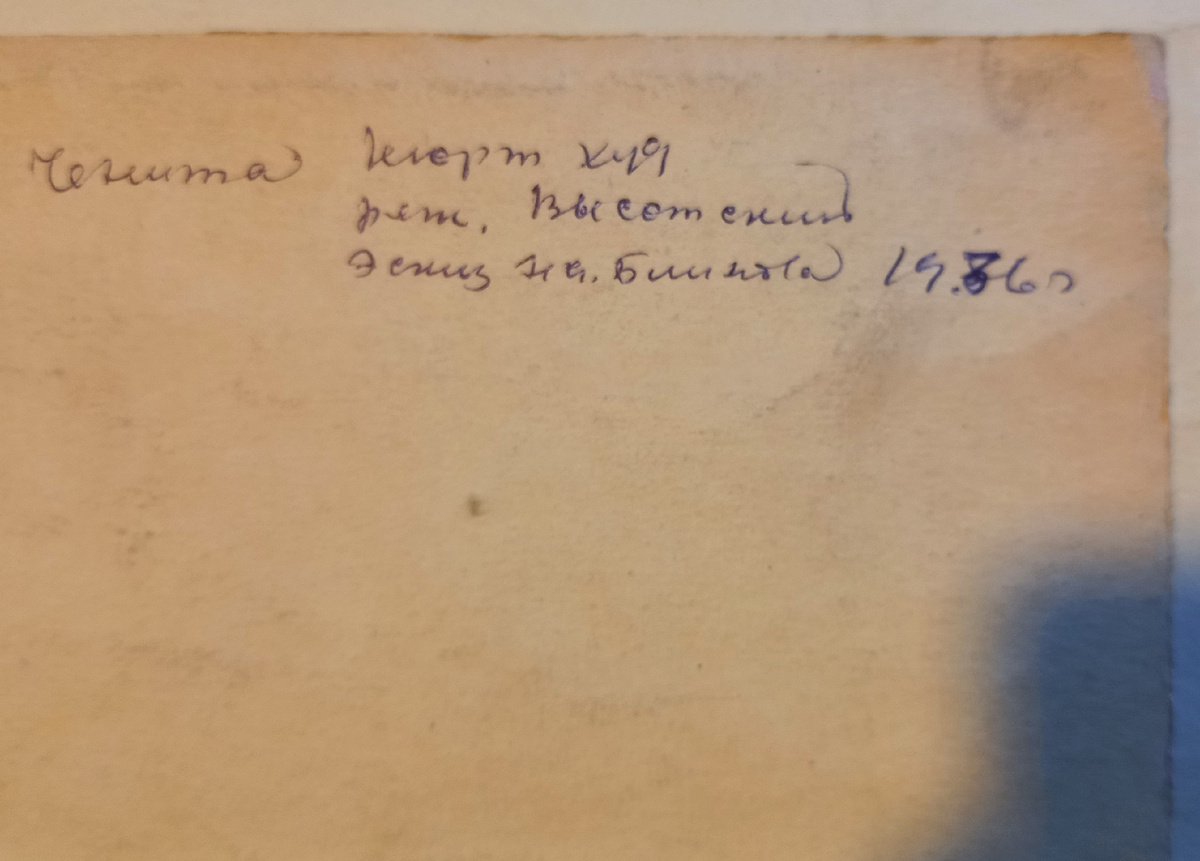 Ченита Кюрт худ
реж. Высотский
Эскиз на. Блинова 1936г